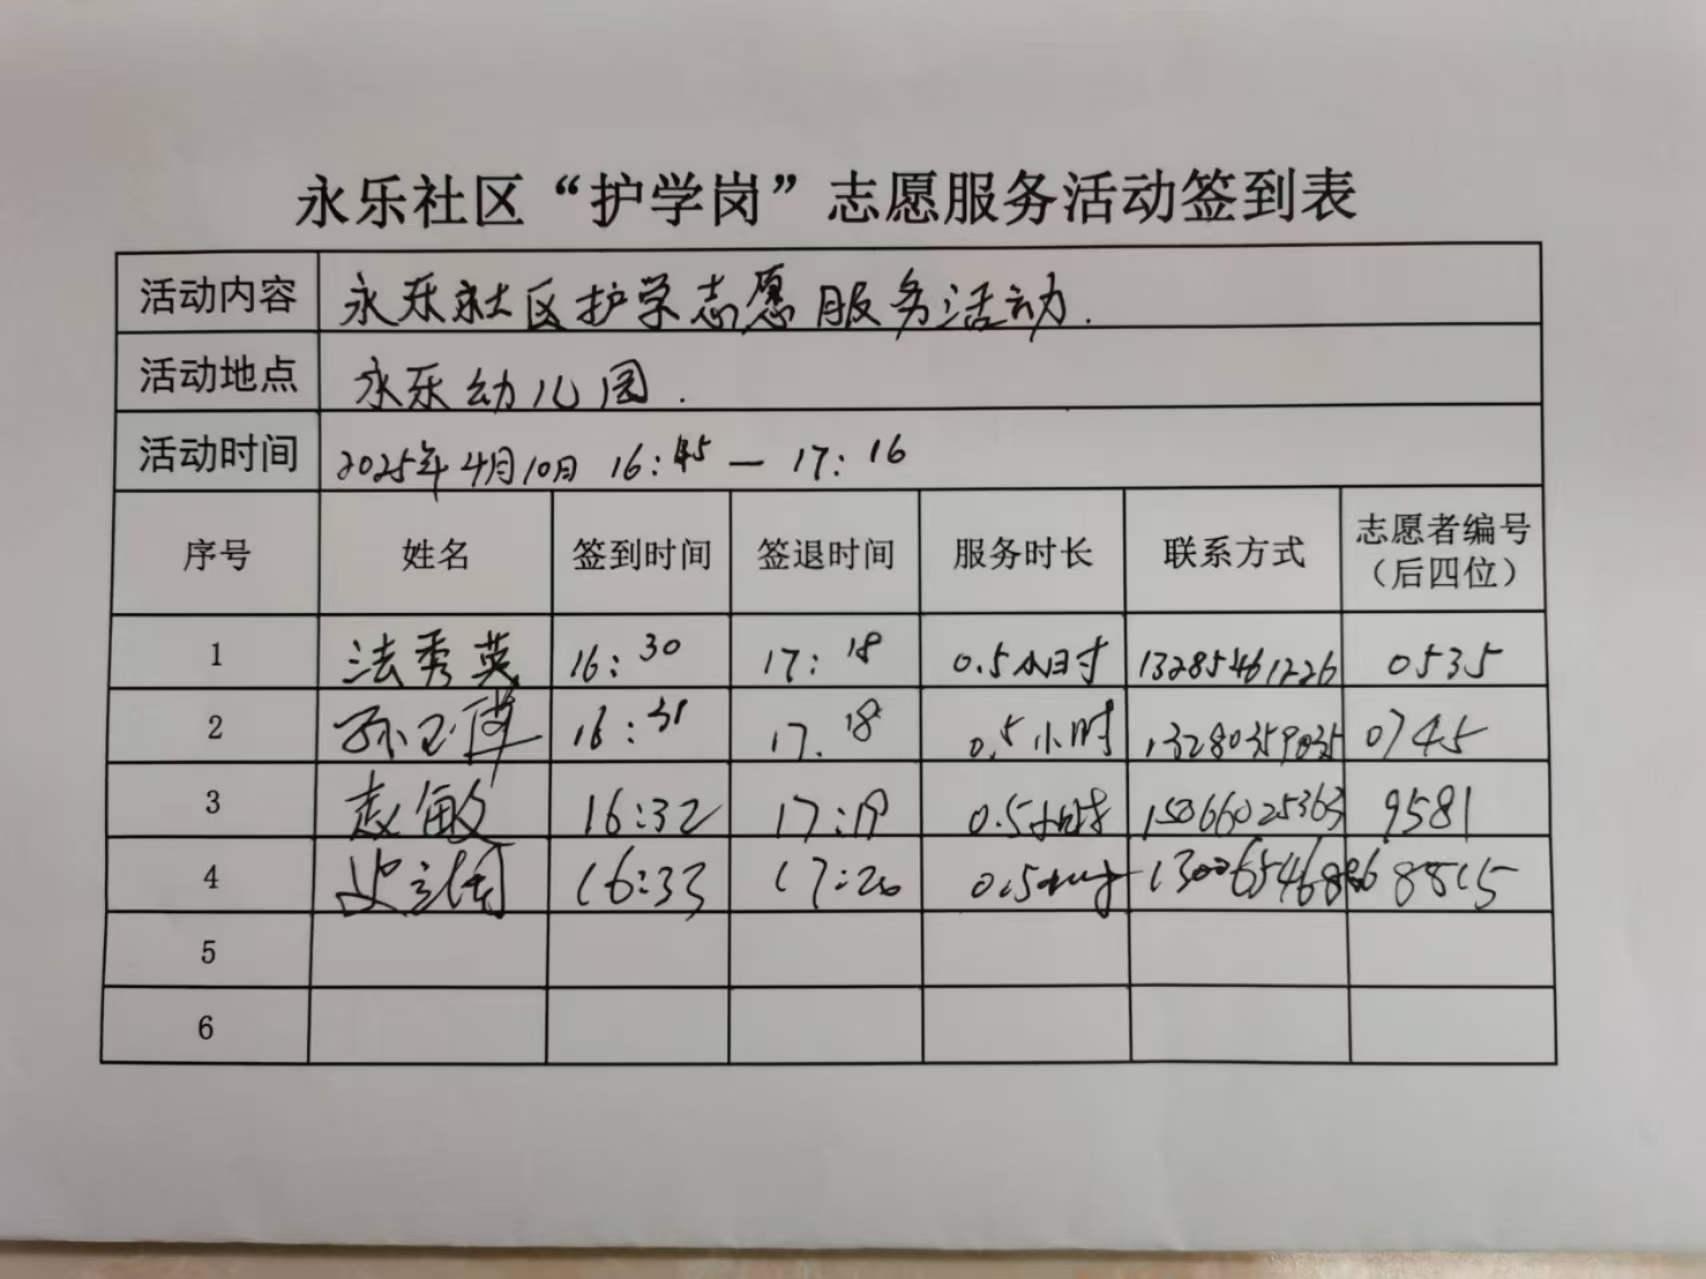 永乐社区“护学岗”志愿服务活动签到表
活动内容 永乐社区护学志愿服务活动.
活动地点 永乐幼儿园.
活动时间 2025年4月10日 16:45 — 17:16
序号 姓名 签到时间 签退时间 服务时长 联系方式 志愿者编号（后四位）
1 法秀英 16:30 17:18 0.5小时 13285461226 0535
2 孙玉 16:31 17.18 0.5小时 13280359035 0745
3 赵敏 16:32 17:19 0.5小时 15066025363 9581
4 史 16:33 17:20 0.5小时 8815
5
6